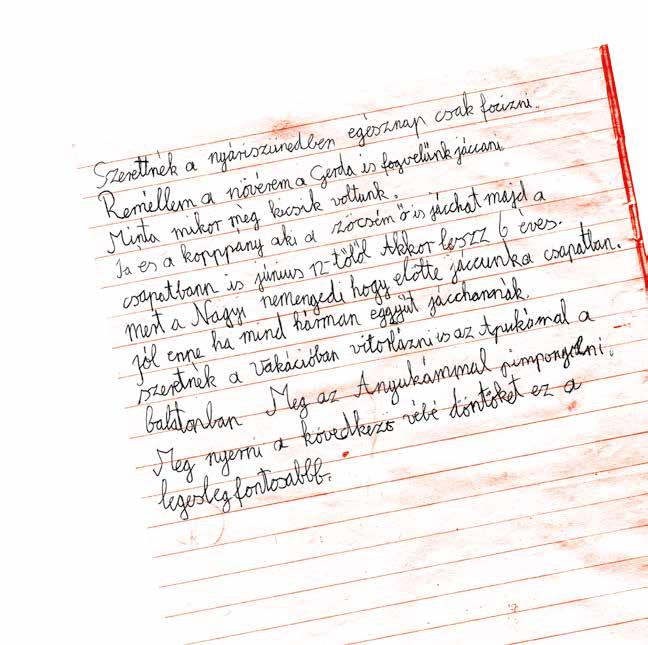 Szerettnék a nyáriszünedben egésznap csak focizni.
Reméllem a növérem a Gerda is fogvelünk jáccani
Minta mikor még kicsik voltunk.
Ja és a kopppány aki a zöcsém ő is jácchat majd a
csapatbann is június 12-től Akkor leszz 6 éves.
mert a Nagyi nemengedi hogy előtte jáccunka csapatban.
jól enne ha mind hárman eggyüt jácchannák.
szeretnék a vakációban vitorlázni is az Apukámal a
balatonban Meg az Anyukámmal pimpongolni.
Meg nyerni a kövedkező vébé döntőket ez a
legeslegfontosabbb.